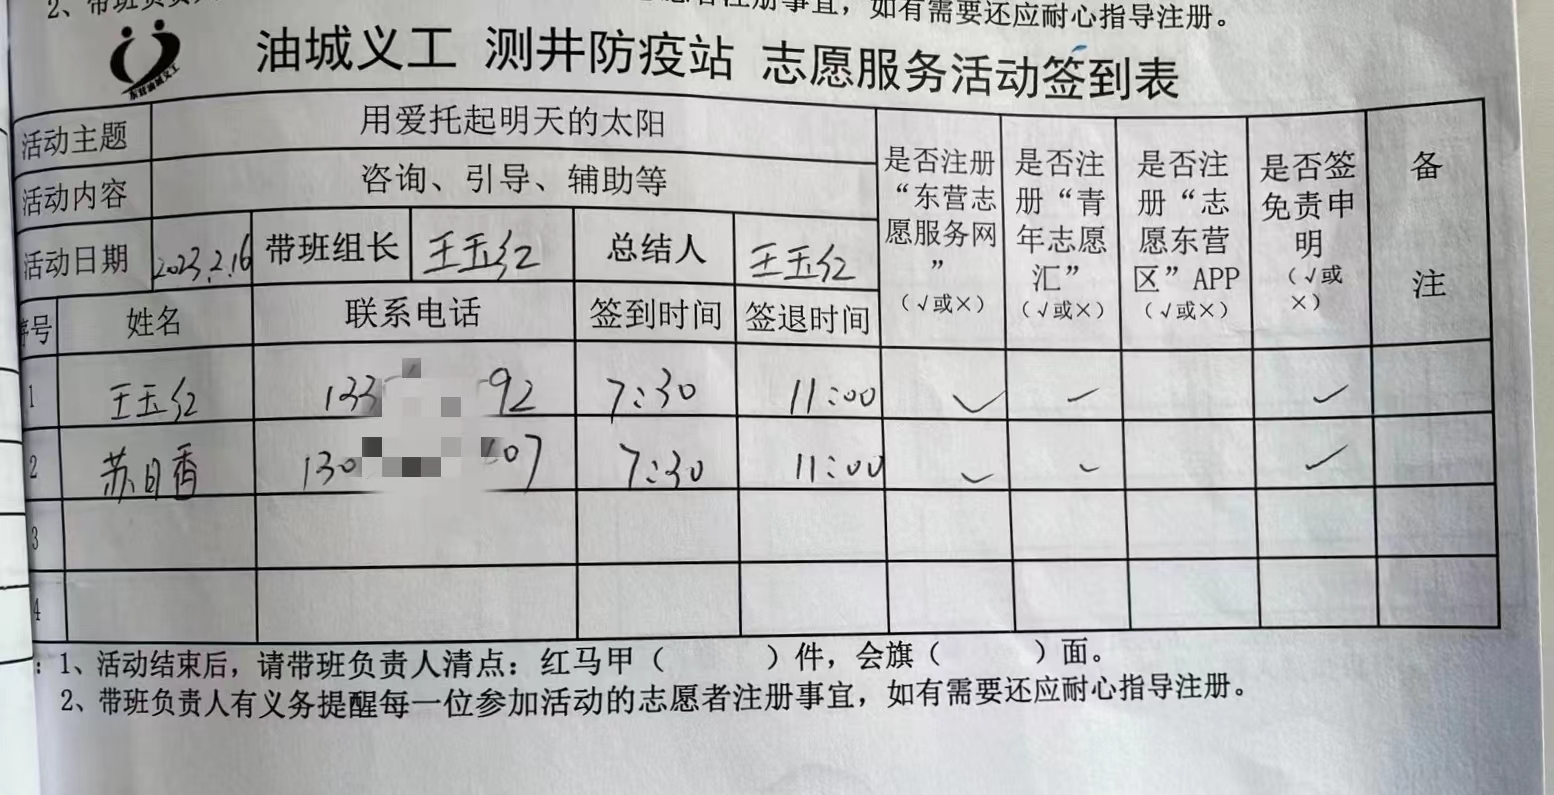 2、带班负责人
志愿者注册事宜，如有需要还应耐心指导注册。
油城义工 测井防疫站 志愿服务活动签到表
东营油城义工
活动主题 用爱托起明天的太阳
活动内容 咨询、引导、辅助等
活动日期 2023.2.16 带班组长 王玉红 总结人 王玉红
是否注册“东营志愿服务网”（√或×）
是否注册“青年志愿汇”（√或×）
是否注册“志愿东营区”APP（√或×）
是否签免责申明（√或×）
备注
序号 姓名 联系电话 签到时间 签退时间
1 王玉红 133 92 7:30 11:00 ✓ ✓ ✓
2 苏日香 130 07 7:30 11:00 ✓ ✓ ✓
3
4
：1、活动结束后，请带班负责人清点：红马甲（ ）件，会旗（ ）面。
2、带班负责人有义务提醒每一位参加活动的志愿者注册事宜，如有需要还应耐心指导注册。